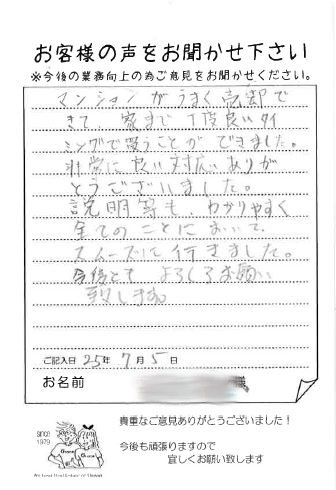 お客様の声をお聞かせ下さい
※今後の業務向上の為ご意見をお聞かせください。
マンションがうまく売却で
きて 家まで丁度良いタイ
ミングで買うことができました。
非常に良い対応ありが
とうございました。
説明等も、わかりやすく
全てのことにおいて、
スムーズに行きました。
今後とも よろしくお願い
致します。
ご記入日 25年 7月 5日
お名前 様
貴重なご意見ありがとうございました!
今後も頑張りますので
宜しくお願い致します
since
1979